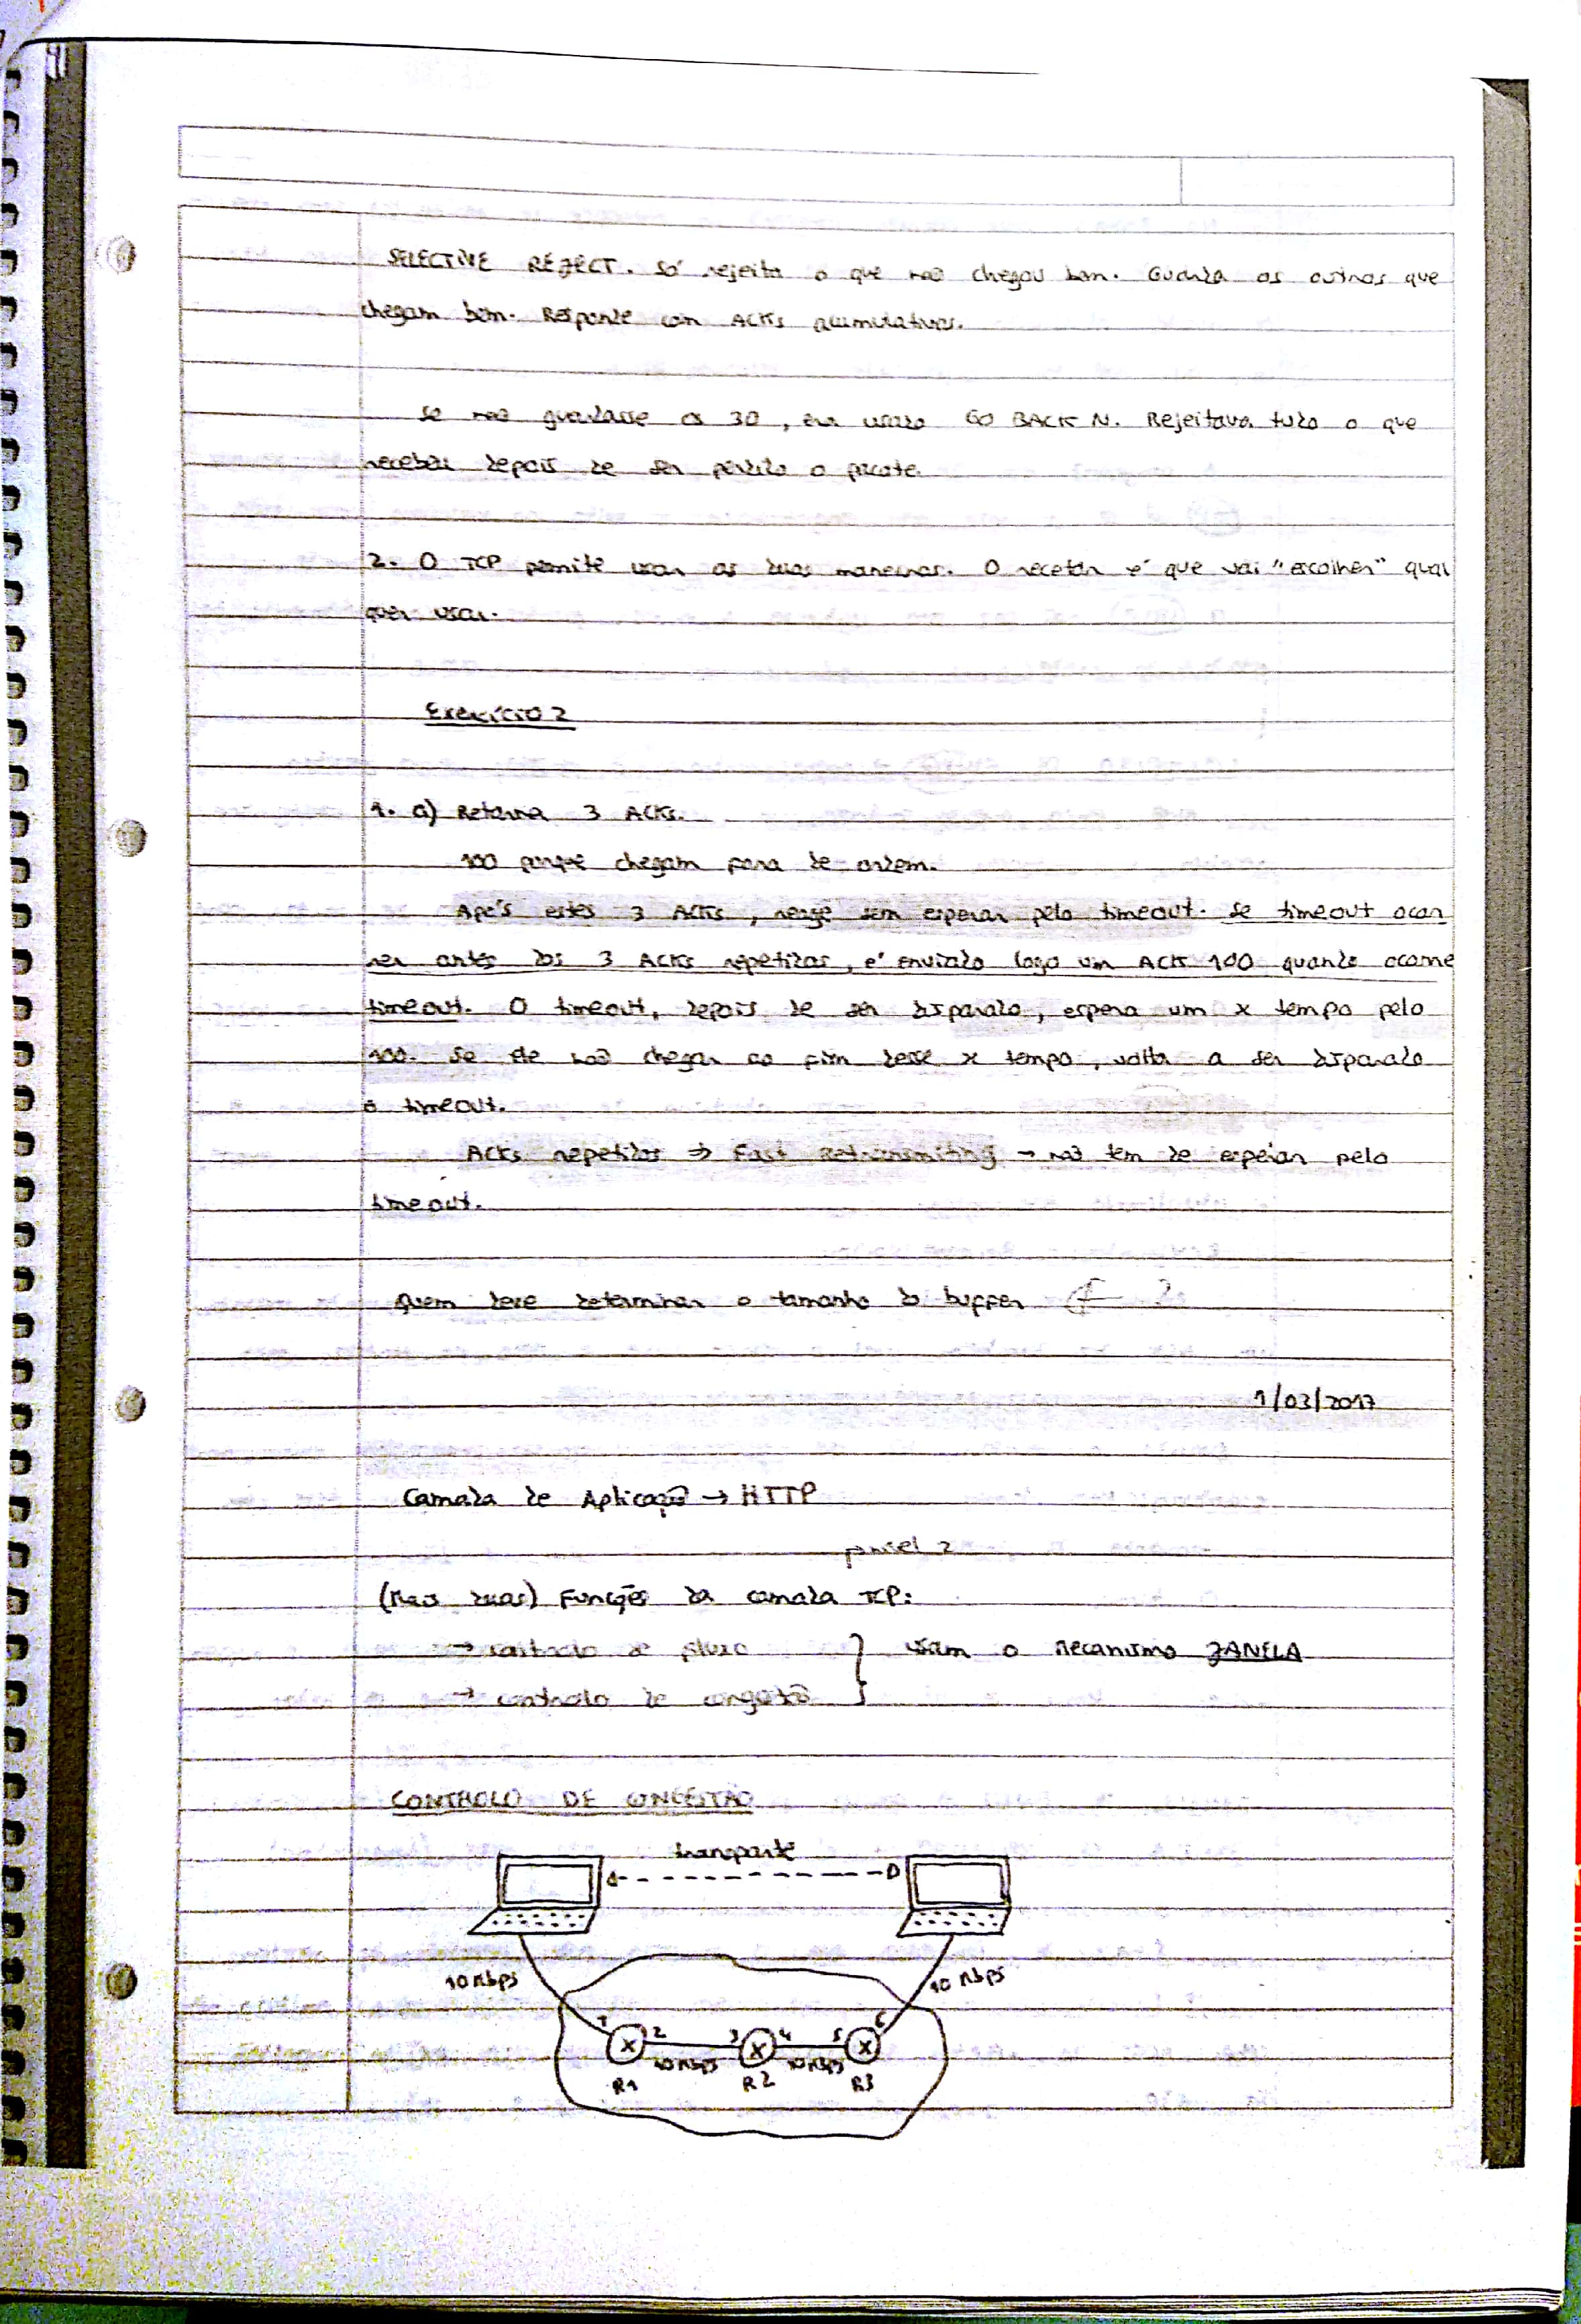 SELECTIVE REJECT. Só rejeita o que não chegou bem. Guarda os outros que
chegam bem. Responde com ACKs acumulativos.
Se não guardasse os 30, era usado GO BACK N. Rejeitava tudo o que
recebeu depois de ser perdido o pacote.
2. O TCP permite usar as duas maneiras. O recetor é que vai "escolher" qual
quer usar.
Exercício 2
1. a) Retorna 3 ACKs.
100 porque chegam fora de ordem.
Após estes 3 ACKs, reage sem esperar pelo timeout. Se timeout ocor
rer antes dos 3 ACKs repetidos, é enviado logo um ACK 100 quando ocorre
timeout. O timeout, depois de ser disparado, espera um x tempo pelo
100. Se ele não chegar ao fim desse x tempo, volta a ser disparado
o timeout.
ACKs repetidos → Fast Retransmiting → não tem de esperar pelo
timeout.
Quem deve determinar o tamanho do buffer ?
1/03/2017
Camada de Aplicação → HTTP
(Mais duas) Funções da camada TCP:
→ controlo de fluxo
→ controlo de congestão
usam o mecanismo JANELA
CONTROLO DE CONGESTÃO
transporte
10 Mbps
10 Mbps
1 2 3 4 5 6
10 Mbps 10 Mbps
R1 R2 R3